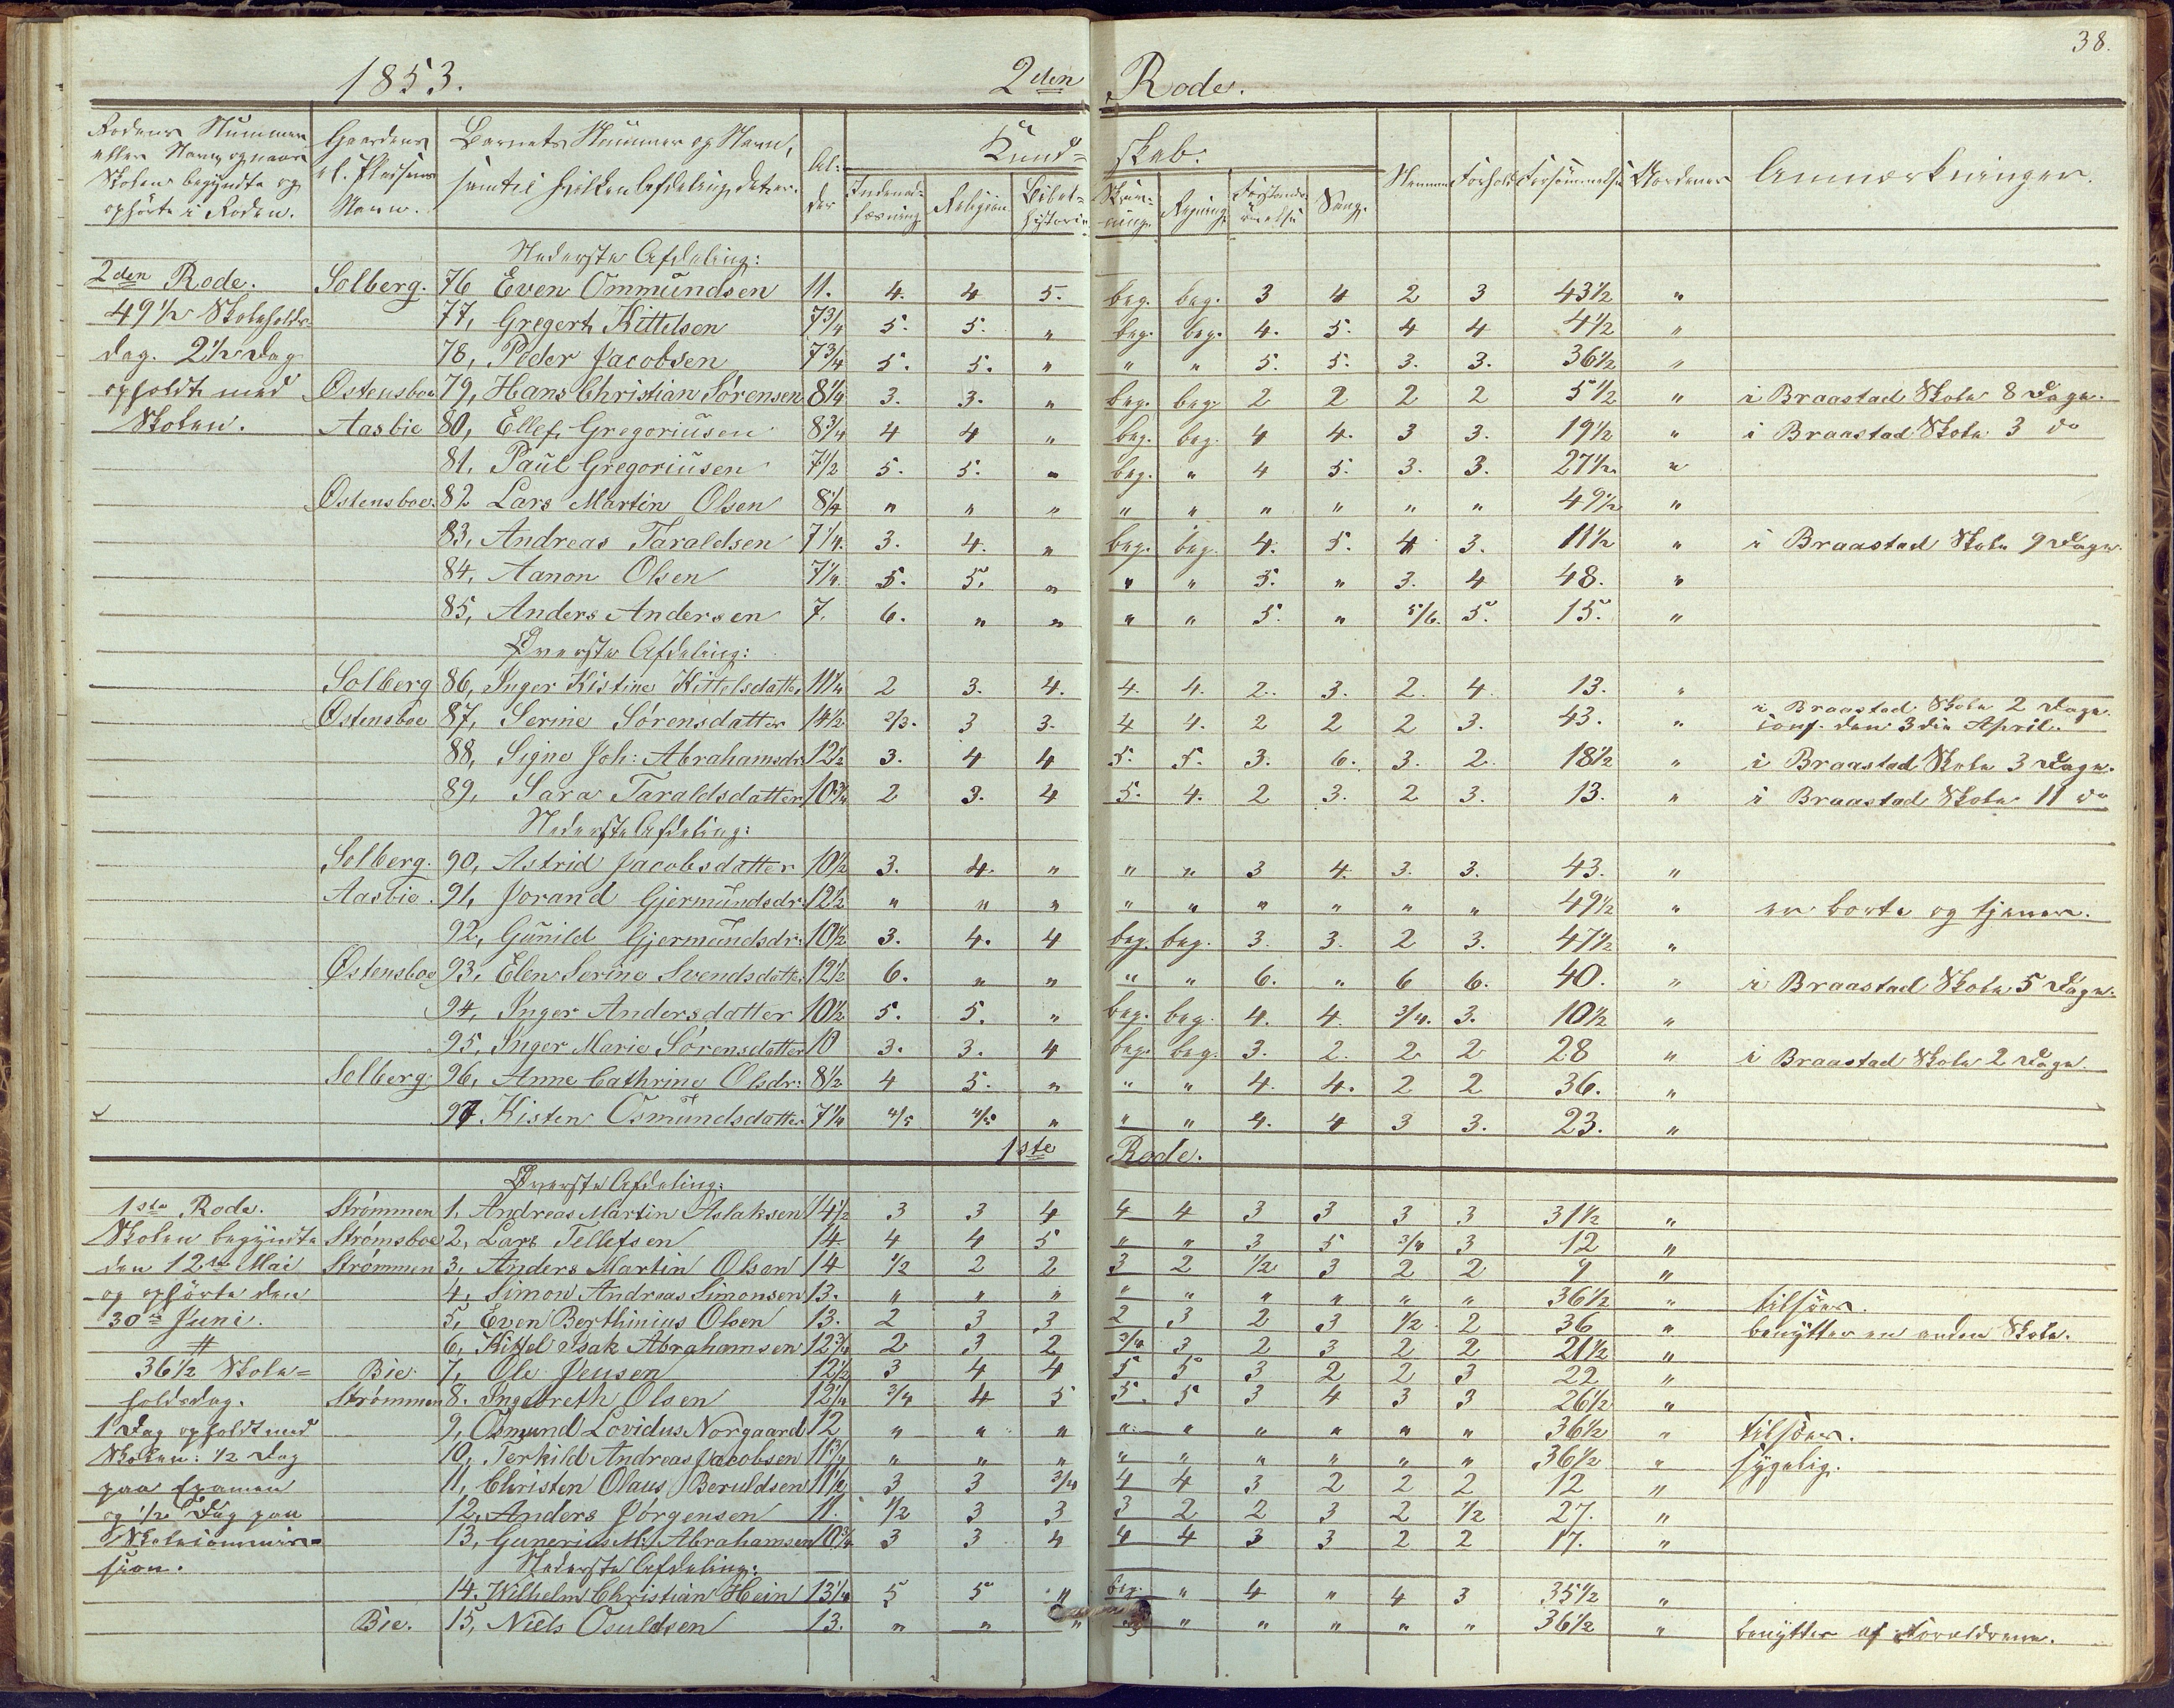 38.
1853. 2den Rode.
Rodens Nummer eller Navn, og naar Skolen begyndte og ophørte i Roden. | Gaardens el. Pladsens Navn. | Barnets Nummer og Navn, samt i hvilken Afdeling det er. | Al-der | Kund-skab: Indenad-læsning | Religion | Bibel-historie | Skriv-ning | Regning | Forstands-øvelse | Sang. | Nemme | Forhold | Forsømmelse | Anmærkninger.
Nederste Afdeling:
2den Rode. Solberg. 76 Even Ommundsen 11. 4. 4 5. beg. beg. 3 4 2 3 43½ "
49½ Skoleholds- 77, Gregert Kittelsen 7¾ 5. 5. " beg. beg. 4. 5. 4 4 4½ "
dag. 2½ Dag 78, Peder Jacobsen 7¾ 5. 5. " " " 5. 5. 3. 3. 36½ "
opholdt med Østensboe 79, Hans Christian Sørensen 8¼ 3. 3. " beg. beg. 2 2 2 2 5½ " i Braastad Skole 8 Dage.
Skolen. Aasbie 80, Ellef Gregoriusen 8¾ 4 4 " beg. beg. 4 4. 3 3. 19½ " i Braastad Skole 3 do
81. Paul Gregoriusen 7½ 5. 5. " beg. " 4 5. 3. 3. 27½ "
Østensboe. 82 Lars Martin Olsen 8¼ " " " " " " " " " 49½ "
83, Andreas Taraldsen 7¼. 3. 4. " beg. beg. 4. 5. 4 3. 11½ " i Braastad Skole 9 Dage.
84, Aanon Olsen 7¼. 5. 5. " " " 5. " 3. 4 48. "
85, Anders Andersen 7. 6. " " " " 5. " 5/6. 5. 15. "
Øverste Afdeling:
Solberg 86, Inger Kistine Kittelsdatter 11¼ 2 3. 4. 4. 4. 2. 3. 2. 4. 13. "
Østensboe 87, Serine Sørensdatter 14½ 2/3. 3 3. 4 4. 2 2 2 3. 43. " i Braastad Skole 2 Dage. conf. den 3die April.
88, Signe Joh: Abrahamsdr. 12½ 3. 4 4 5. 5. 3. 6. 3. 2. 18½ " i Braastad Skole 3 Dage.
89, Sara Taraldsdatter 10¾ 2 3. 4 5. 4. 2 3. 2 3. 13. " i Braastad Skole 11 do
Nederste Afdeling:
Solberg. 90, Astrid Jacobsdatter 10½ 3. 4. " " " 3 4. 3. 3. 43. "
Aasbie. 91, Jorand Gjermundsdr. 12½ " " " " " " " " " 49½ " er borte og tjener.
92, Gunild Gjermundsdr: 10½ 3. 4. 4 beg. beg. 3. 3. 2 3. 47½ "
Østensboe 93, Elen Serine Svendsdatt: 12½ 6. " " " " 6. " 6 6. 40. " i Braastad Skole 5 Dage.
94, Inger Andersdatter 10½ 5. 5. " beg. beg. 4. 4. 3/4. 3. 10½ "
95, Inger Marie Sørensdatter 10 3. 3. 4 beg. beg. 3. 2. 2 2 28 " i Braastad Skole 2 Dage.
Solberg. 96, Anne Cathrine Olsdr: 8½ 4 5. " " " 4. 4. 2 2 36. "
97. Kisten Osmundsdatter 7¼ 4/5 4/5 " " " 4. 4 3 3. 23. "
1ste Rode.
Øverste Afdeling:
1ste Rode. Strømmen 1, Andreas Martin Aslaksen 14½ 3 3 4 4 4 3 3 3 3 31½ "
Skolen begyndte Strømsboe 2, Lars Tellefsen 14 4 4 5 " " 3 5 3/4 3 12 "
den 12te Mai Strømmen 3, Anders Martin Olsen 14 1/2 2 2 3 2 1/2 3 2 2 9 "
og ophørte den 4, Simon Andreas Simonsen 13. " " " " " " " " " 36½ " tilsøes.
30te Juni. 5, Even Berthinius Olsen 13. 2 3 3 2 3 2 3 1/2 2 36 " benytter en anden Skole.
6, Kittel Isak Abrahamsen 12¾ 2 3 2 3/4 3 2 3 2 2 21½ "
36½ Skole= Bie. 7, Ole Jensen 12½ 3 4 4 5 5 3 2 2 3 22 "
holdsdag. Strømmen 8. Ingebreth Olsen 12¼ 3/4 4 5 5. 5 3 4 3 3 26½ "
1 Dag opholdt med 9, Osmund Lovidus Norgaard 12 " " " " " " " " " 36½ " tilsøes.
Skolen: ½ Dag 10, Terkild Andreas Jacobsen 11¾ " " " " " " " " " 36½ " sygelig.
paa Examen 11, Christen Olaus Beruldsen 11½ 3 3 3/4 4 4 3 2 2 2 12 "
og ½ Dag paa 12, Anders Jørgensen 11. 1/2 3 3 3 2 2 3 2 1/2 27. "
Skolecommis= 13, Gunerius M: Abrahamsen 10¾ 3 3 4 4 4 3 3 2 2 17. "
sion. Nederste Afdeling:
14. Wilhelm Christian Hein 13¼ 5 5 " beg. " 4 " 4 3 35½ "
Bie. 15, Niels Osuldsen 13. " " " " " " " " " 36½ " benyttes af Forældrene.